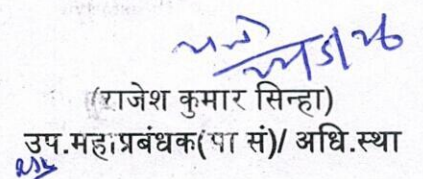 (राजेश कुमार सिन्हा)
उप.महाप्रबंधक(पा सं)/ अधि.स्था